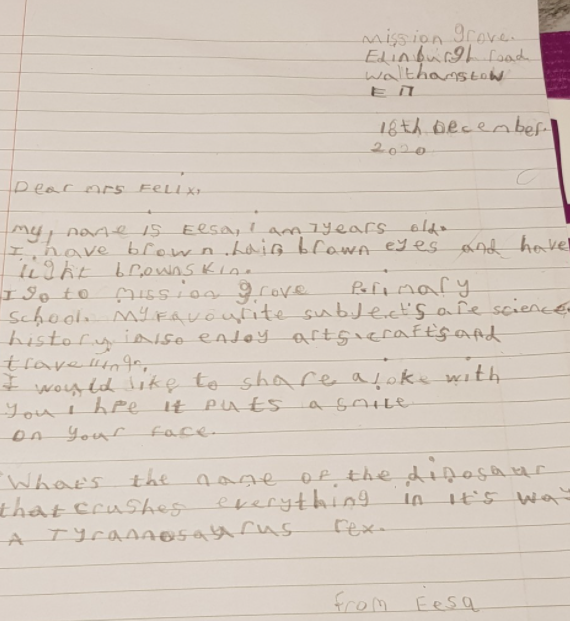 Mission grove.
Edinburgh road
Walthamstow
E 17
18th December.
2020
Dear Mrs Felix,
My, name is Eesa, i am 7years old.
I have brown hair brown eyes and have
light brown skin.
I go to mission grove Primary
school. My favourite subject's are science
history i also enjoy arts, crafts and
travelling.
I would like to share a joke with
you i hpe it puts a smile
on your face.
What's the name of the dinosaur
that crushes everything in it's way
A Tyrannosaurus rex.
from Eesa